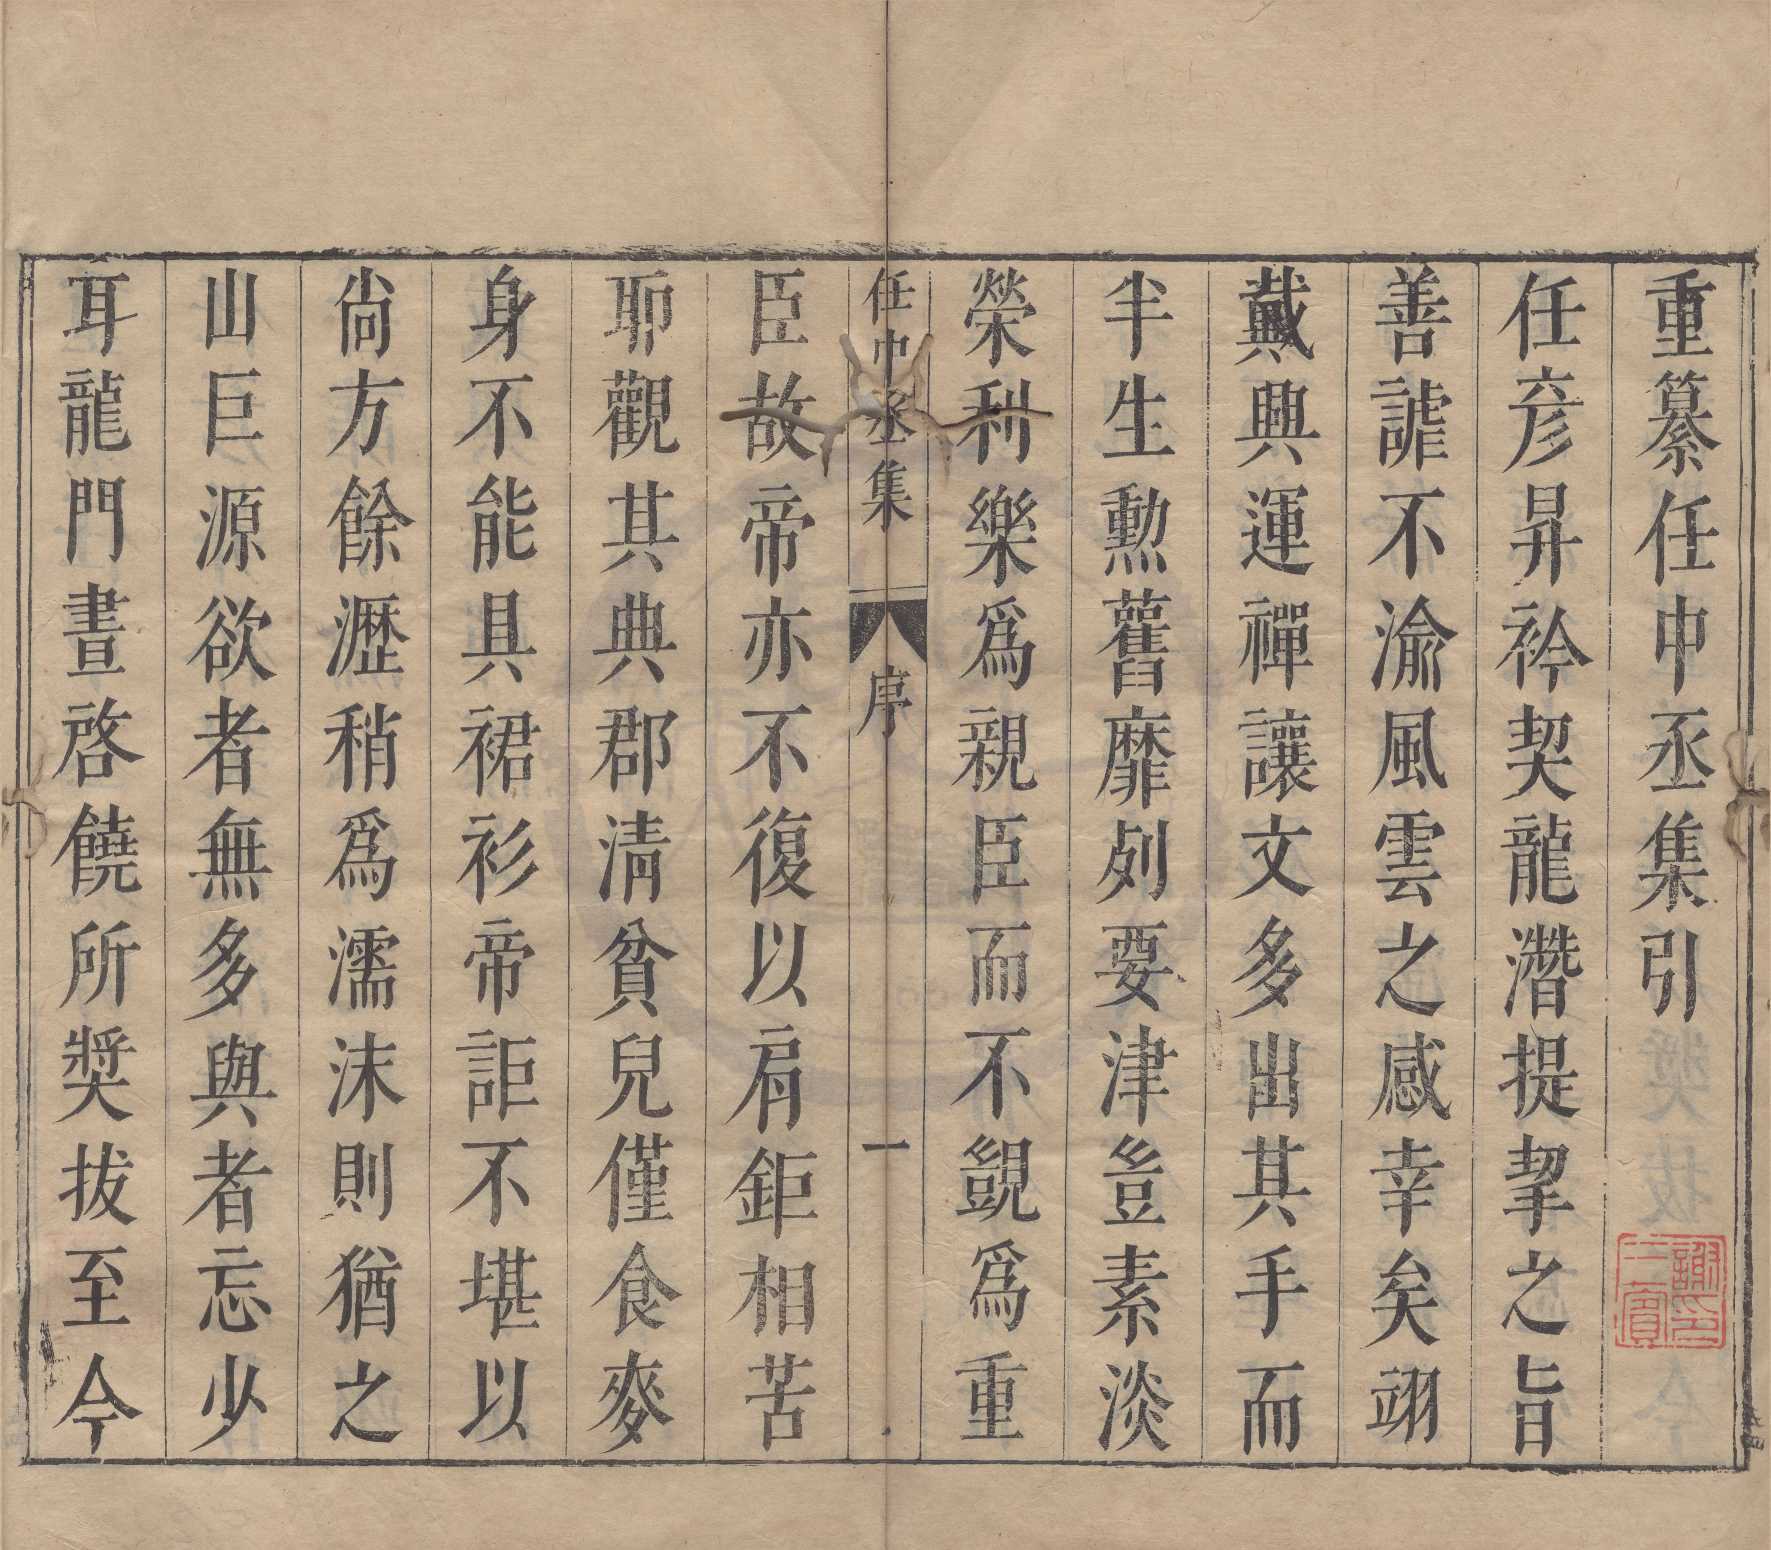 重纂任中丞集引
任彥昇衿契龍潛提挈之旨
善謔不渝風雲之感幸矣翊
戴興運禪讓文多出其手而
半生勳舊靡列要津豈素淡
榮利樂爲親臣而不覬爲重
任中丞集
序
一
臣故帝亦不復以肩鉅相苦
耶觀其典郡淸貧兒僅食麥
身不能具裙衫帝詎不堪以
尙方餘瀝稍爲濡沫則猶之
山巨源欲者無多與者忘少
耳龍門晝啓饒所奬拔至今
謝印
三賓